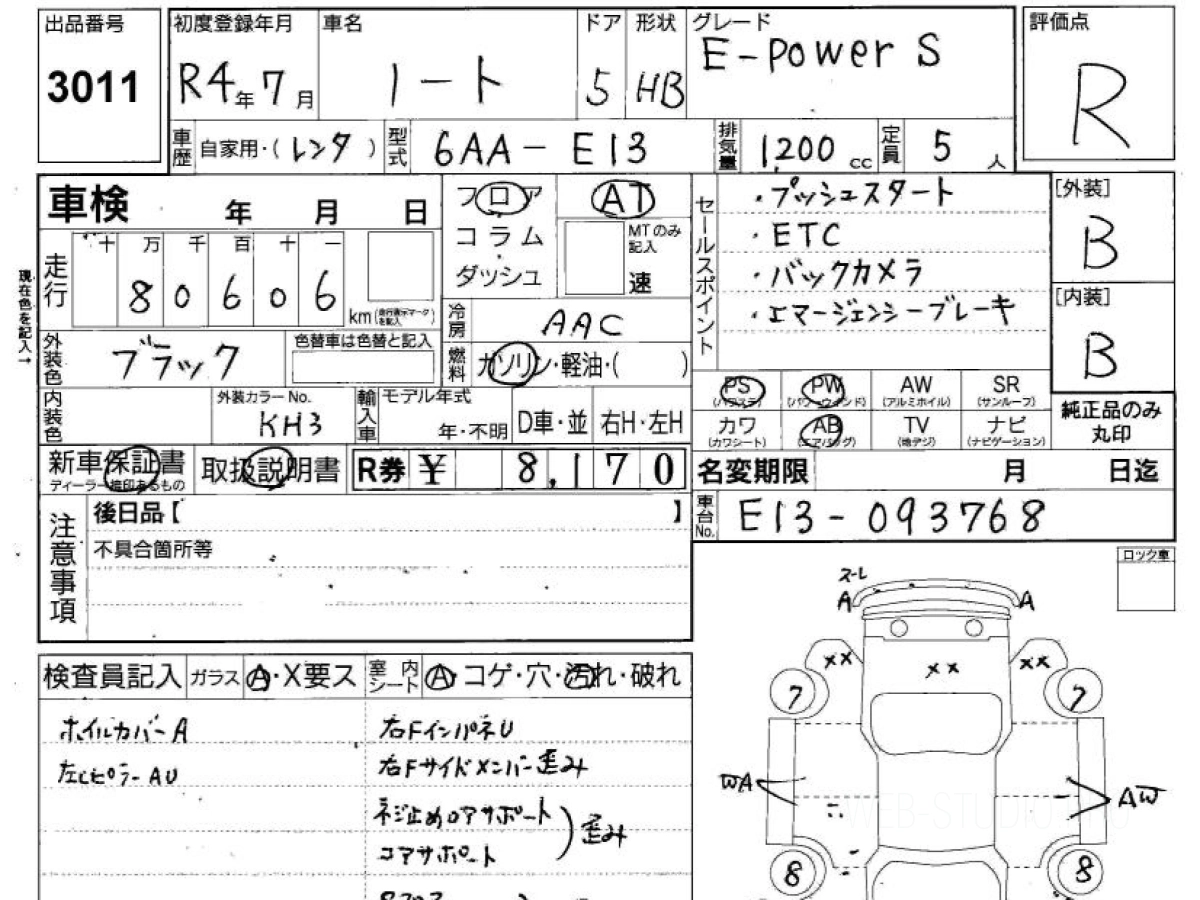 出品番号 初度登録年月 車名 ドア 形状 グレード 評価点
3011 R4年7月 ノート 5 HB E-POWER S R
車歴 自家用・(レンタ) 型式 6AA-E13 排気量 1200cc 定員 5人
車検 年 月 日
フロア AT
コラム MTのみ記入
ダッシュ 速
セールスポイント
・プッシュスタート
・ETC
・バックカメラ
・エマージェンシーブレーキ
[外装]
B
[内装]
B
現在色を記入→
走行 十 万 千 百 十 一
8 0 6 0 6 km
冷房 AAC
外装色 ブラック 色替車は色替と記入
燃料 ガソリン・軽油・( )
内装色 外装カラーNo. KH3 輸入車 モデル年式 年・不明 D車・並 右H・左H
PS(パワステ) PW(パワーウインド) AW(アルミホイル) SR(サンルーフ)
カワ(カワシート) AB(エアバッグ) TV(地デジ) ナビ(ナビゲーション)
純正品のみ丸印
新車保証書 ディーラー捺印あるもの 取扱説明書 R券 ¥ 8,170
名変期限 月 日迄
注意事項 後日品【 】
車台No. E13-093768
不具合箇所等
ロック車
スーレ
A A
XX XX XX
7 7
WA AW
8 8
WEB-STUDIO.PRO
検査員記入 ガラス A・X要ス 室内シート A・コゲ・穴・汚れ・破れ
ホイルカバーA 右FインパネU
左CピラーAU 右Fサイドメンバー歪み
ネジ止めロアサポート
コアサポート
歪み